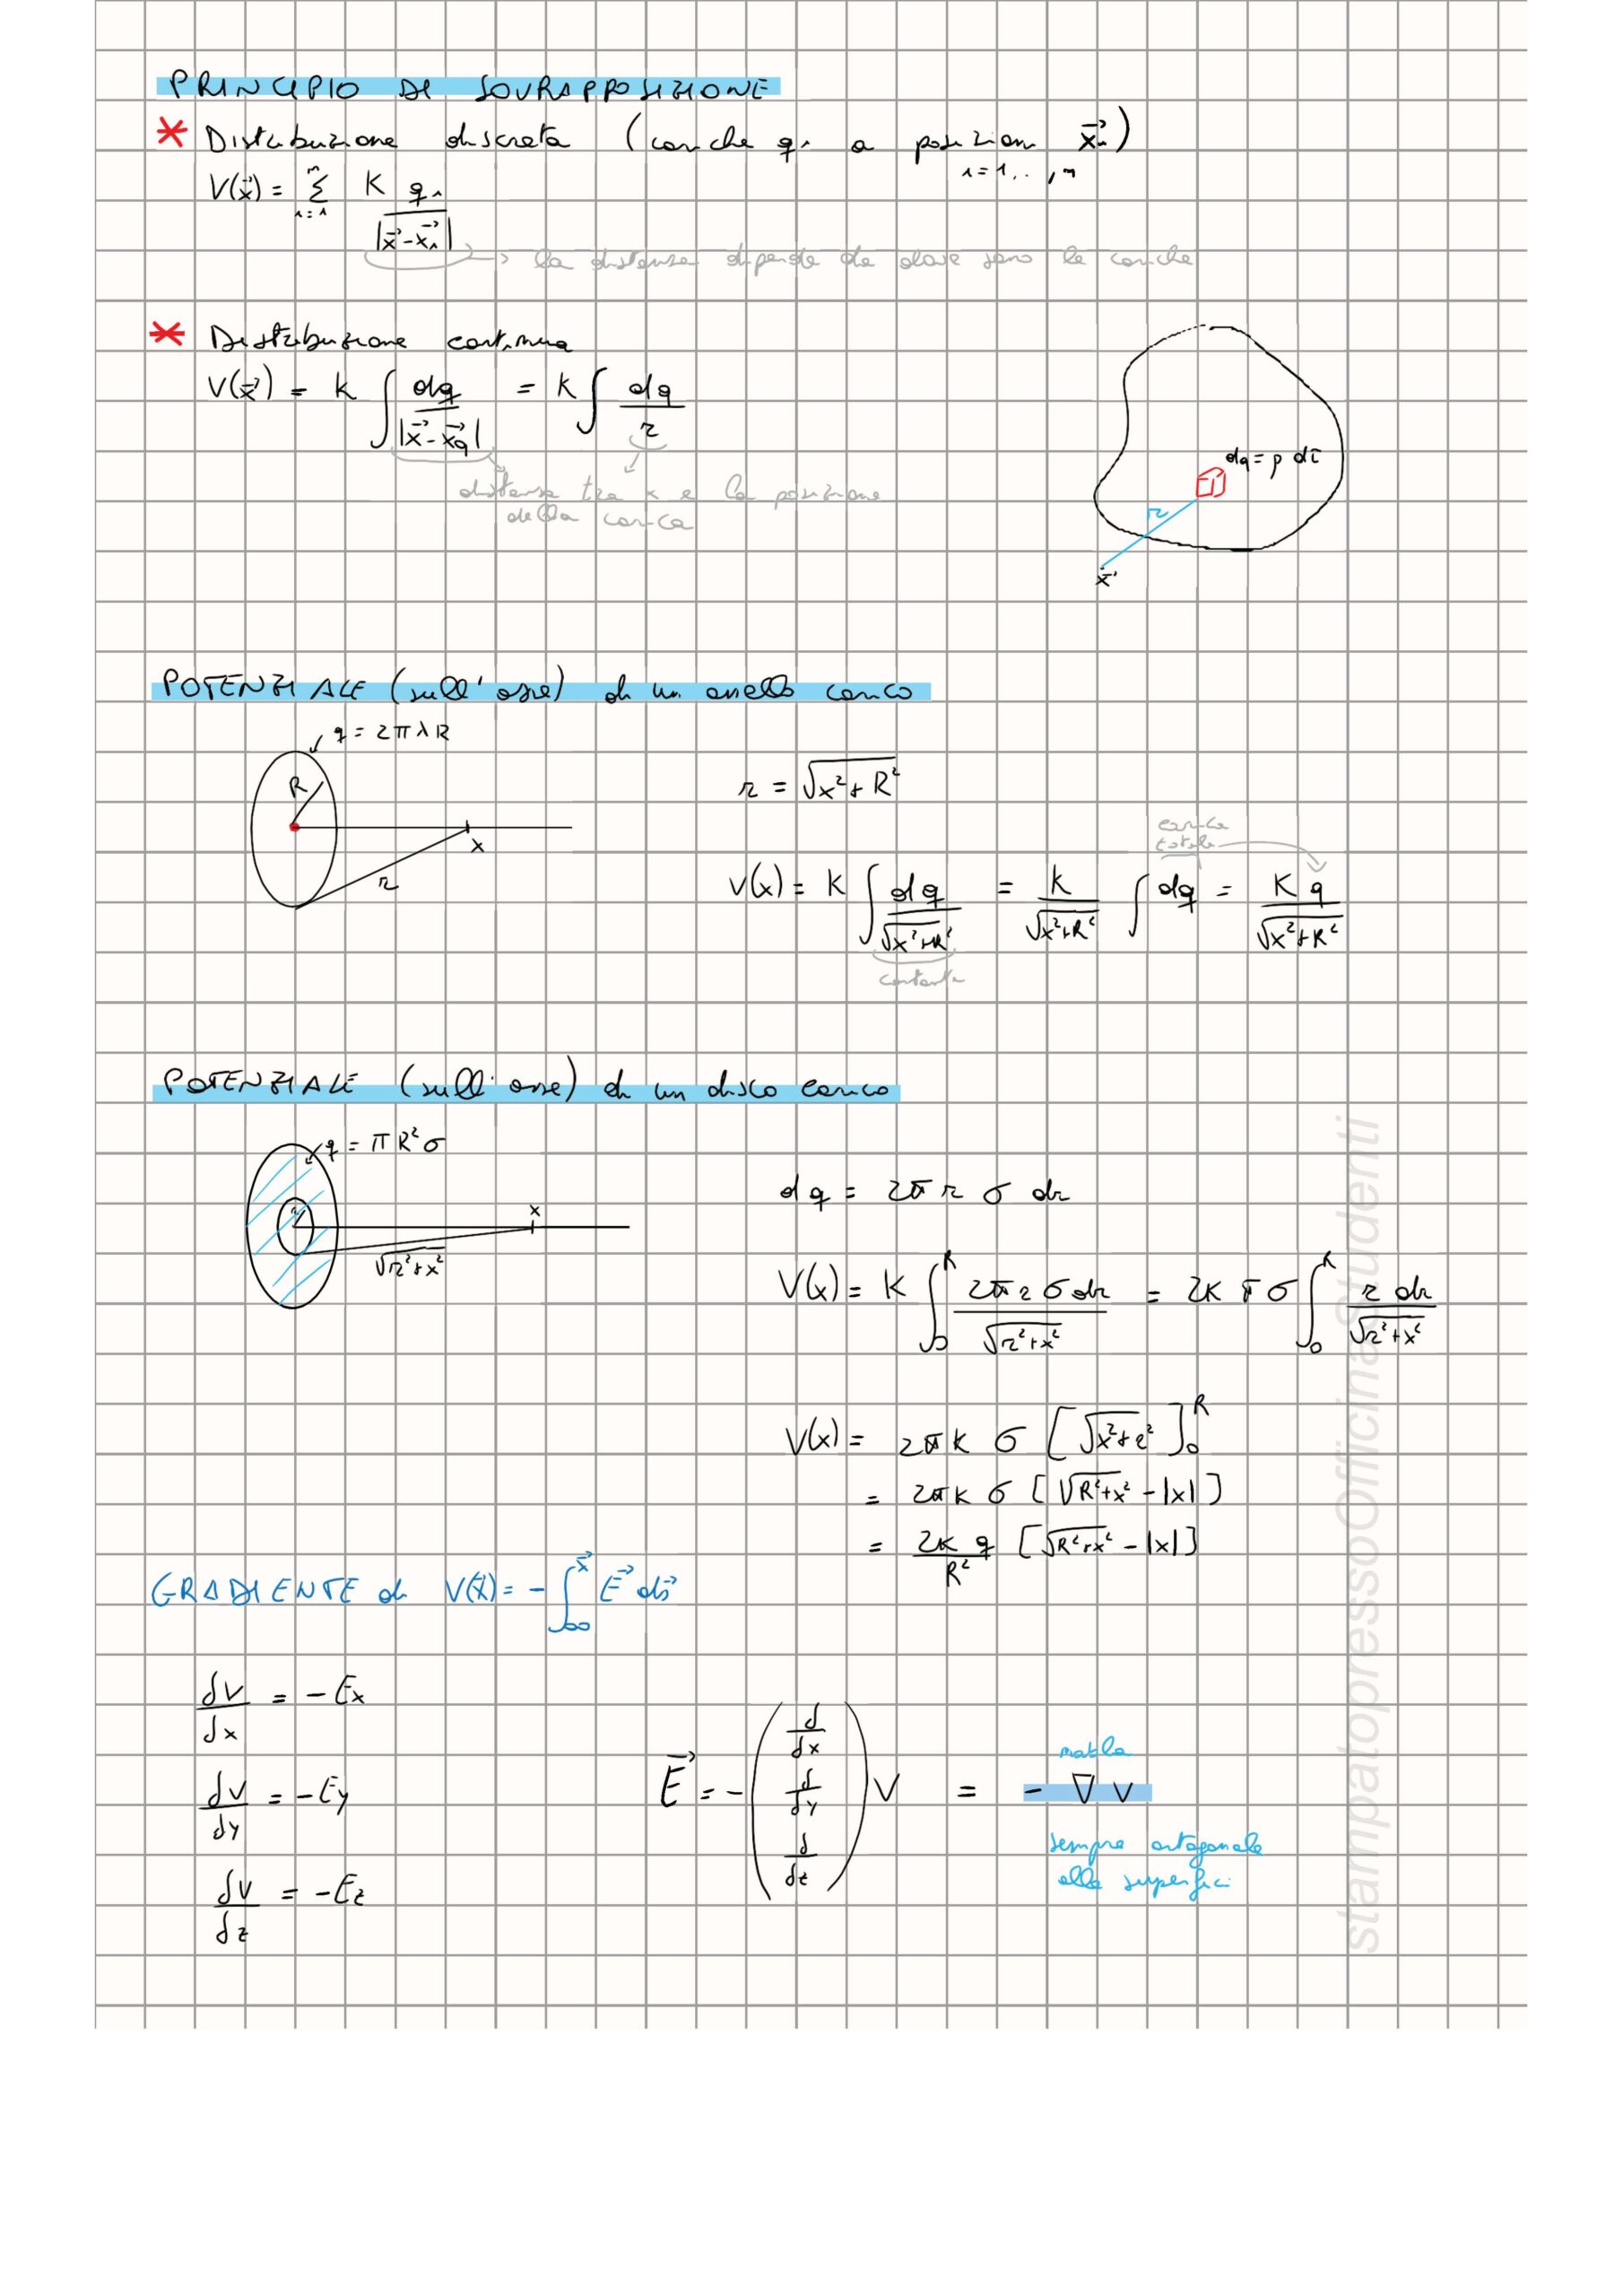 PRINCIPIO DI SOVRAPPOSIZIONE
* Distribuzione discreta (cariche qᵢ a posizioni x⃗ᵢ)
i=1,..,n
V(x⃗) = Σᵢ₌₁ⁿ K qᵢ / |x⃗-x⃗ᵢ|
→ la distanza dipende da dove sono le cariche
* Distribuzione continua
V(x⃗) = k ∫ dq / |x⃗-x⃗q| = k ∫ dq / r
distanza tra x e la posizione
della carica
dq = ρ dτ
r
x⃗
POTENZIALE (sull'asse) di un anello carico
q = 2πλR
R
x
r
r = √x²+R²
carica
totale
V(x) = K ∫ dq / √x²+R² = k / √x²+R² ∫ dq = K q / √x²+R²
costante
POTENZIALE (sull'asse) di un disco carico
q = πR²σ
r
x
√r²+x²
dq = 2π r σ dr
V(x) = K ∫₀ᴿ 2π r σ dr / √r²+x² = 2K π σ ∫₀ᴿ r dr / √r²+x²
V(x) = 2πk σ [√x²+r²]₀ᴿ
= 2πk σ [√R²+x² - |x|]
= 2K q / R² [√R²+x² - |x|]
GRADIENTE di V(x⃗) = - ∫∞ˣ⃗ E⃗ ds⃗
δV/δx = - Ex
δV/δy = - Ey
δV/δz = - Ez
E⃗ = - (δ/δx δ/δy δ/δz) V = - ∇ V
nabla
sempre ortogonale
alle superfici
stampatopressoOfficinaStudenti